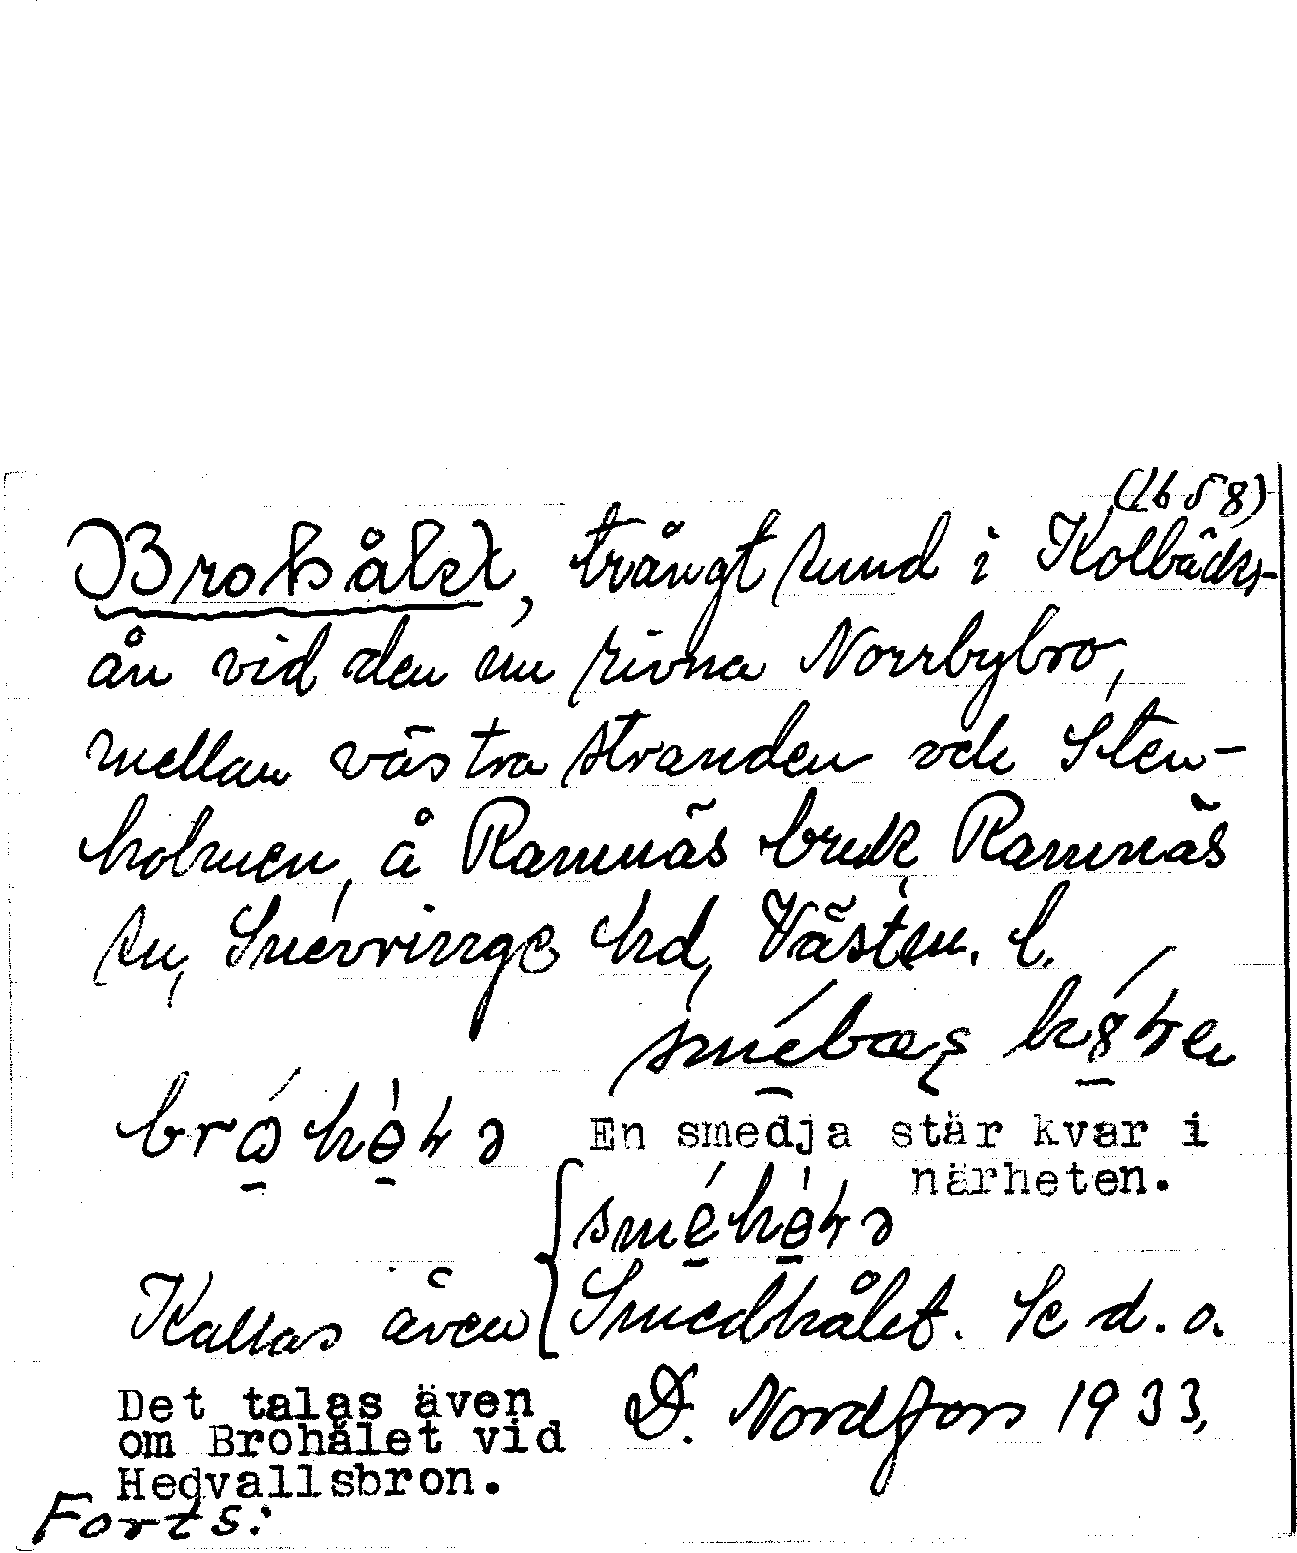 (1658)
Brohålet, trångt sund i Kolbäcks-
ån vid den nu rivna Norrbybro,
mellan västra stranden och Sten-
holmen, å Ramnäs bruk, Ramnäs
sn, Snevringe hd, Västm. l.
En smedja står kvar i
närheten.
Kallas även Smedhålet. Se d. o.
Det talas även
om Brohålet vid
Hedvallsbron.
D. Nordfors 1933.
Forts: